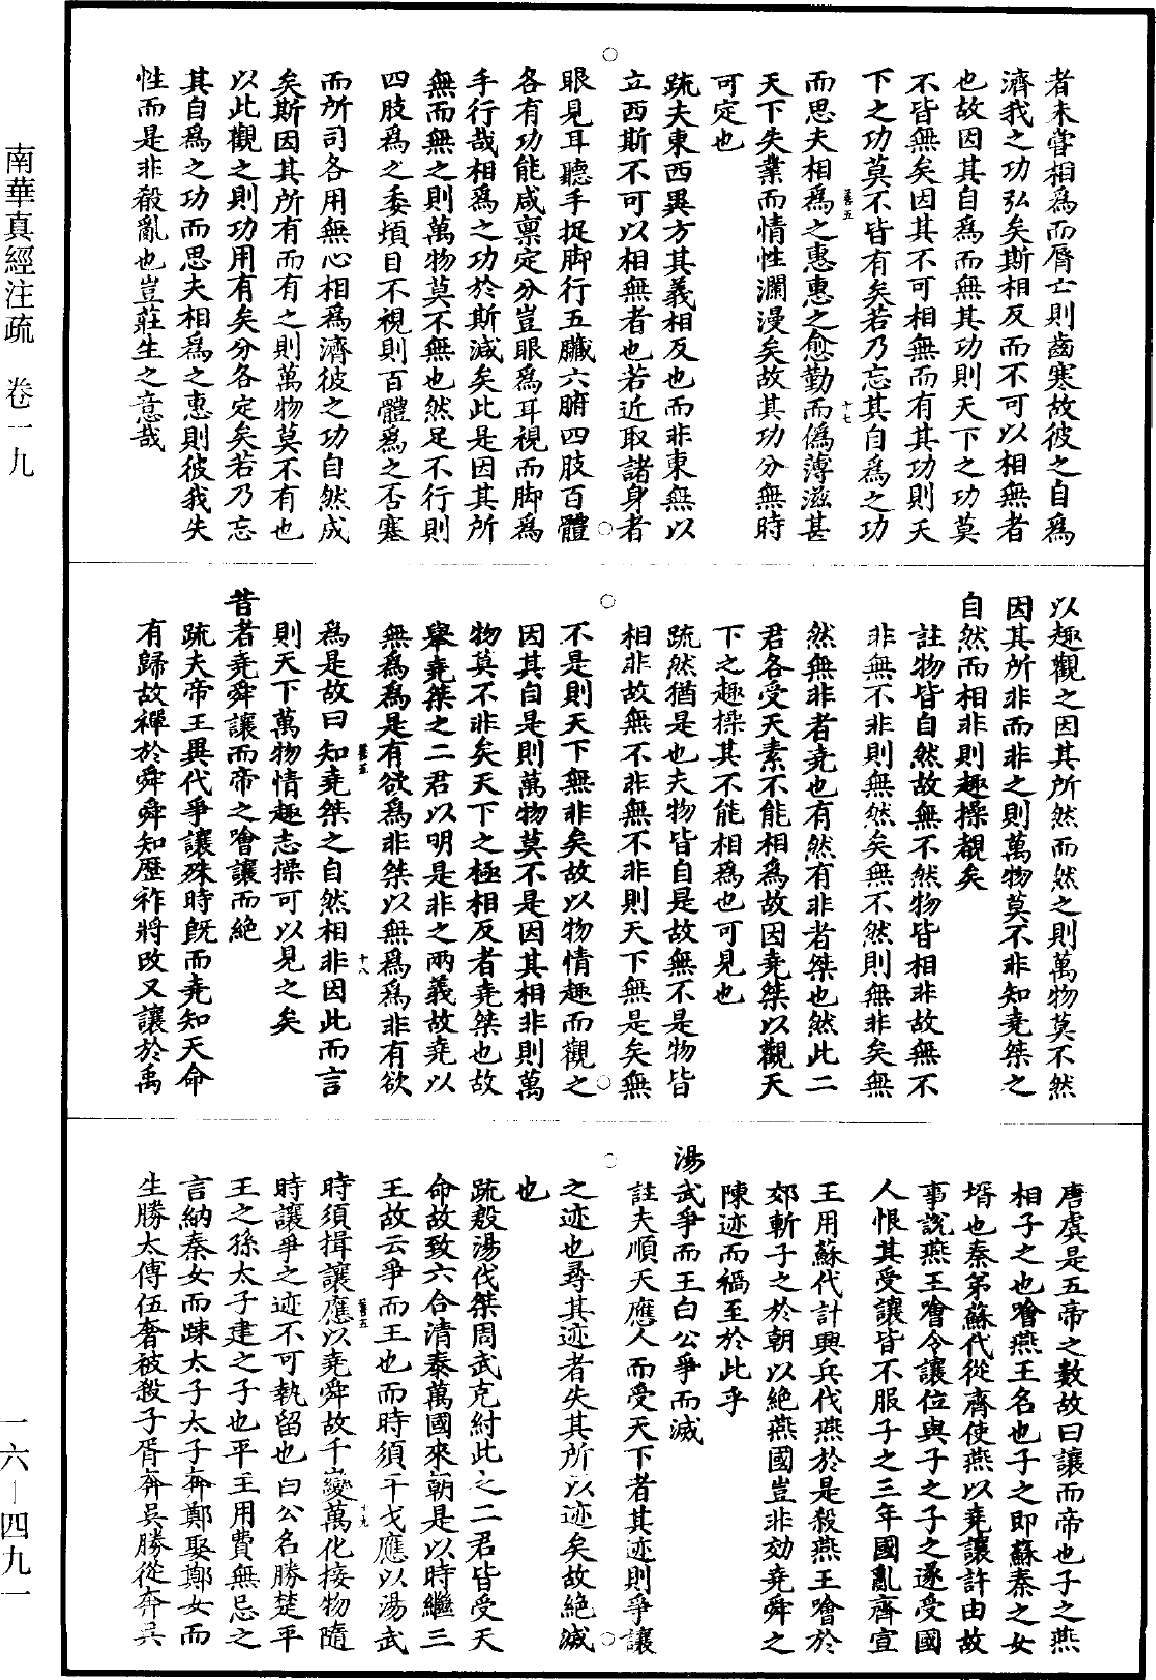 者未嘗相爲而脣亡則齒寒故彼之自爲
濟我之功弘矣斯相反而不可以相無者
也故因其自爲而無其功則天下之功莫
不皆無矣因其不可相無而有其功則天
下之功莫不皆有矣若乃忘其自爲之功
而思夫相爲之惠惠之愈勤而僞薄滋甚
天下失業而情性瀾漫矣故其功分無時
可定也
疏夫東西異方其義相反也而非東無以
立西斯不可以相無者也若近取諸身者
眼見耳聽手捉脚行五臟六腑四肢百體
各有功能咸禀定分豈眼爲耳視而脚爲
手行哉相爲之功於斯滅矣此是因其所
無而無之則萬物莫不無也然足不行則
四肢爲之委頓目不視則百體爲之否塞
而所司各用無心相爲濟彼之功自然成
矣斯因其所有而有之則萬物莫不有也
以此觀之則功用有矣分各定矣若乃忘
其自爲之功而思夫相爲之惠則彼我失
性而是非殽亂也豈莊生之意哉
以趣觀之因其所然而然之則萬物莫不然
因其所非而非之則萬物莫不非知堯桀之
自然而相非則趣操覩矣
註物皆自然故無不然物皆相非故無不
非無不非則無然矣無不然則無非矣無
然無非者堯也有然有非者桀也然此二
君各受天素不能相爲故因堯桀以觀天
下之趣操其不能相爲也可見也
疏然猶是也夫物皆自是故無不是物皆
相非故無不非無不非則天下無是矣無
不是則天下無非矣故以物情趣而觀之
因其自是則萬物莫不是因其相非則萬
物莫不非矣天下之極相反者堯桀也故
舉堯桀之二君以明是非之兩義故堯以
無爲爲是有欲爲非桀以無爲爲非有欲
爲是故曰知堯桀之自然相非因此而言
則天下萬物情趣志操可以見之矣
昔者堯舜讓而帝之噲讓而絶
疏夫帝王異代爭讓殊時旣而堯知天命
有歸故禪於舜舜知歷祚將改又讓於禹
唐虞是五帝之數故曰讓而帝也子之燕
相子之也噲燕王名也子之即蘇秦之女
壻也秦弟蘇代從齊使燕以堯讓許由故
事說燕王噲令讓位與子之子之遂受國
人恨其受讓皆不服子之三年國亂齊宣
王用蘇代計興兵伐燕於是殺燕王噲於
郊斬子之於朝以絶燕國豈非効堯舜之
陳迹而禍至於此乎
湯武爭而王白公爭而滅
註夫順天應人而受天下者其迹則爭讓
之迹也尋其迹者失其所以迹矣故絶滅
也
疏殷湯伐桀周武克紂此之二君皆受天
命故致六合清泰萬國來朝是以時繼三
王故云爭而王也而時須干戈應以湯武
時須揖讓應以堯舜故千變萬化接物隨
時讓爭之迹不可執留也白公名勝楚平
王之孫太子建之子也平王用費無忌之
言納秦女而踈太子太子奔鄭娶鄭女而
生勝太傅伍奢被殺子胥奔吳勝從奔吳
南華真經注疏 卷一九
一六—四九一